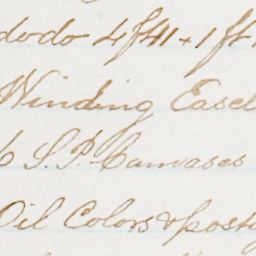 do do 4 ft 4 + 1 ft
Winding Easel
6 S.P. Canvases
Oil Colors & posta